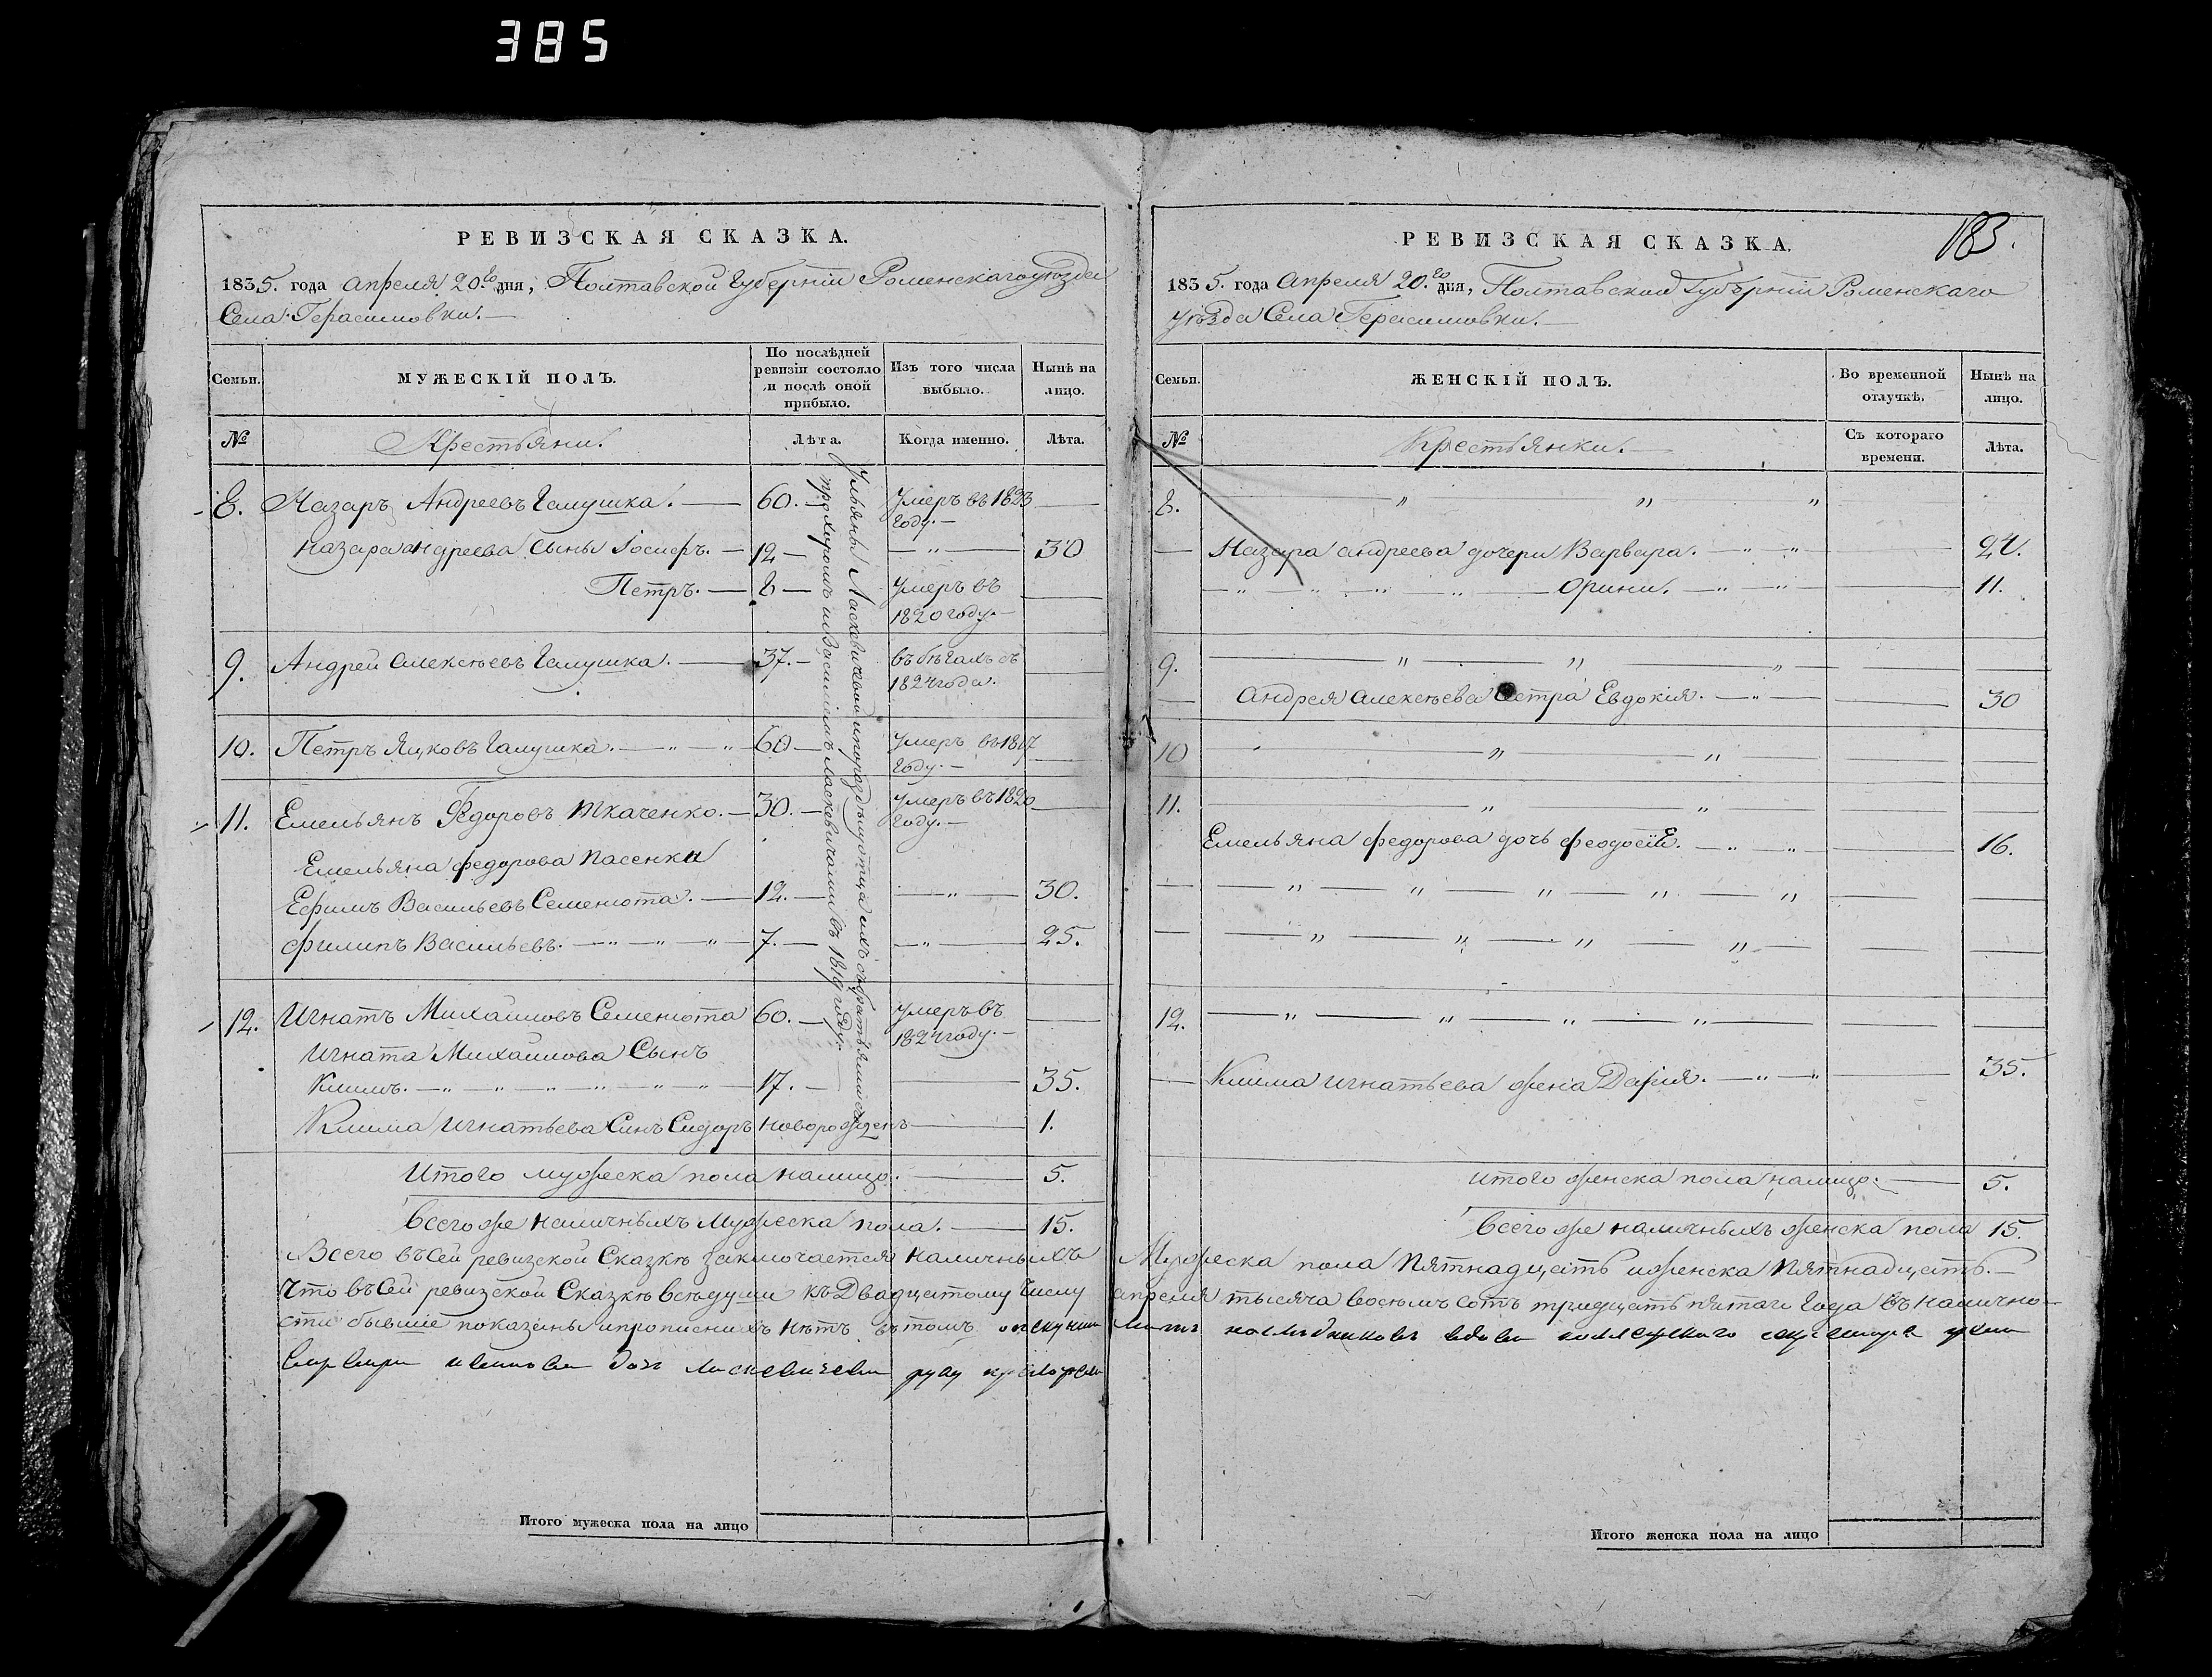 385
РЕВИЗСКАЯ СКАЗКА.
1835. года апреля 20.го дня, Полтавской Губернии Роменского уезда
Села Герасимовки.
Семьи.
МУЖЕСКІЙ ПОЛЪ.
По послѣдней ревизіи состояло и послѣ оной прибыло.
Изъ того числа выбыло.
Нынѣ на лицо.
№
Крестьяни.
Лѣта.
Когда именно.
Лѣта.
8. Назаръ Андреевъ Галушка. 60. Умеръ въ 1823
году.
Назара андреева Сыны Іосифъ. 12 — 30
Петръ. 8 Умеръ въ
1820 году.
9. Андрей Алексѣевъ Галушка. 37. въ бѣгахъ съ
1824 года.
10. Петръ Яцковъ Галушка. 60 Умеръ въ 1817
году.
11. Емельянъ Федоровъ Ткаченко. 30. Умеръ въ 1820
году.
Емельяна федорова пасенки
Ефимъ Васильевъ Семенюта. 12. 30.
Филипъ Васильевъ. 7. 25.
12. Игнатъ Михайловъ Семенюта 60. Умеръ въ
1824 году.
Игната Михайлова Сынъ
Климъ. 17. 35.
Клима Игнатьева Синъ Сидоръ новорожденъ 1.
Итого мужеска пола налицо. 5.
Всего же наличныхъ мужеска пола. 15.
Всего въ сей ревизской Сказкѣ заключается наличныхъ
Что въ сей ревизской Сказкѣ всѣ души къ Двадцатому числу
сти бывшіе показаны и прописнихъ нѣтъ въ томъ
Итого мужеска пола на лицо
183.
РЕВИЗСКАЯ СКАЗКА.
1835. года Апреля 20.го дня, Полтавской Губерніи Роменскаго
уѣзда Села Герасимовки.
Семьи.
ЖЕНСКІЙ ПОЛЪ.
Во временной отлучкѣ.
Нынѣ на лицо.
№
Крестьянки.
Съ котораго времени.
Лѣта.
8.
Назара андреева дочери Варвара. 24.
Орини. 11.
9.
Андрея Алексѣева Сетра Евдокія. 30
10
11.
Емельяна федорова дочь феодосіе. 16.
12.
Клима Игнатьева жена Дарія. 35.
итого женска пола налицо. 5.
Всего же наличныхъ женска пола 15.
Мужеска пола пятнадцать и женска пятнадцать.
апреля тысяча восемь сотъ тридцать пятаго года въ налично-
Итого женска пола на лицо